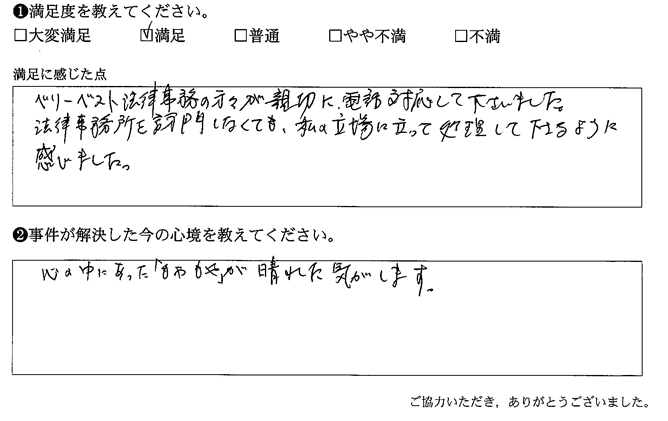 ❶満足度を教えてください。
□大変満足 ☑満足 □普通 □やや不満 □不満
満足に感じた点
ベリーベスト法律事務の方々が親切に、電話対応して下さいました。
法律事務所を訪問しなくても、私の立場に立って処理して下さるように
感じました。
❷事件が解決した今の心境を教えてください。
心の中にあった「もやもや」が晴れた気がします。
ご協力いただき，ありがとうございました。